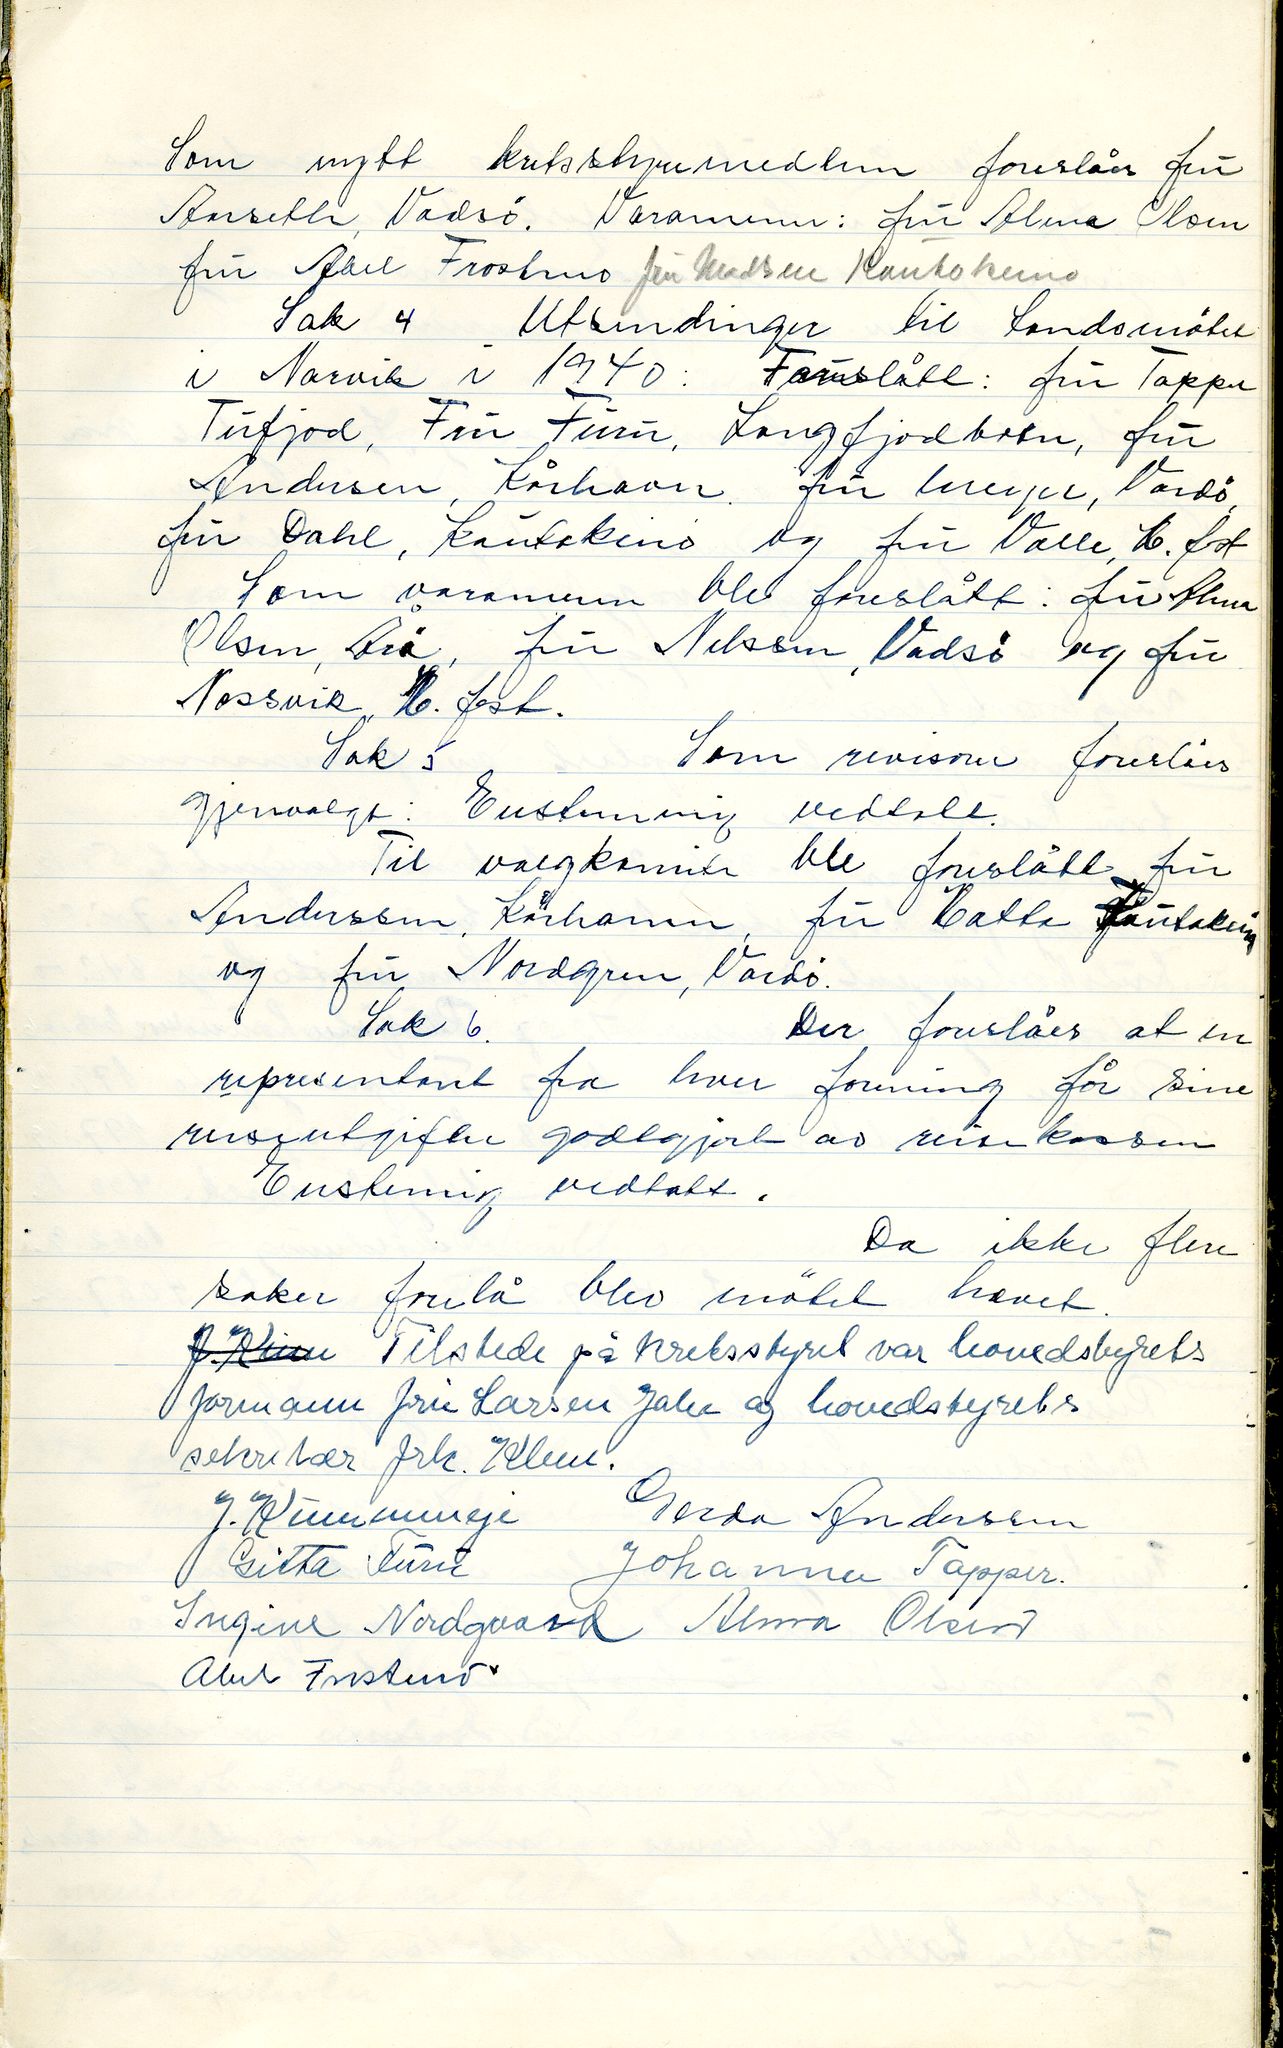 Som nytt kretsstyremedlem foreslåes frü
Anseth, Vadsö. Varamenn: frü Alma Olsen
frü Abel Frostmo frü Madsen Kautokeino
Sak 4 Utsendinger til Landsmötet
i Narvik i 1940: Foreslått: frü Tapper
Tüfjod, Frü Fürü, Langfjodbotn, frü
Andersen, Kårhavn, frü Vardö,
frü Dahl, Kaütokeino og frü Valle, H. fest
Som varamenn ble foreslått: frü Alma
Olsen, frü Nilssen, Vadsö og frü
Nossvik, H. fest.
Sak 5 Som revisorer foreslåes
gjenvalgt: Enstemmig vedtatt.
Til valgkomite ble foreslått frü
Anderssen, Kårhamn, frü Hatta Kaütokeino
og frü Nordgren, Vardö.
Sak 6. Der foreslåes at en
representant fra hver forening får sine
reiseutgifter godtgjort av reisekassen
Enstemig vedtatt.
Da ikke flere
saker forelå blev mötet hævet.
Tilstede på kretsstyret var hovedstyrets
formann frü Larsen Jahn og hovedstyrets
sekretær frk. Klem.
J. Kummeneje Gerda Anderssen
Gitta Fürü Johanna Tapper.
Ingine Nordgvard Alma Olsen
Abel Frostmo